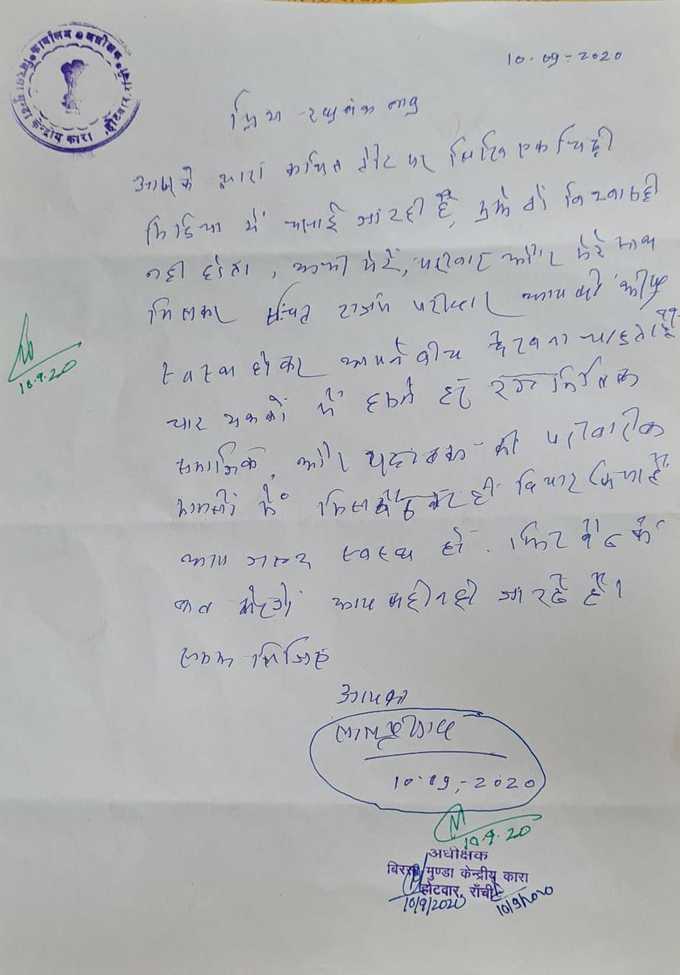 कार्यालय अधीक्षक
बिरसा मुण्डा केन्द्रीय कारा, होटवार, राँची
10-09-2020
प्रिय रघुवंश बाबु
आपके द्वारा कथित तौर पर लिखि एक चिट्ठी
मिडिया में चलाई जा रही है, मुझे तो विश्वास ही
नही होता, अभी मेरे, परीवार और मेरे साथ
मिलकर राजद परीवार आपको शीघ्र
स्वस्थ होकर अपने बीच देखना चाहता है
चार दशकों में हमने हर
समाजिक, और यहां तक की परीवारीक
मामलों में मिल बैठकर ही विचार किया है
आप जरूर स्वस्थ हों. फिर बैठ के
बात करेगें आप कहीं नही जा रहे हैं।
समझ लिजिए
10.9.20
आपका
लालू प्रसाद
10-09-2020
10.9.20
अधीक्षक
बिरसा मुण्डा केन्द्रीय कारा
होटवार, राँची
10/9/2020 10/9/2020